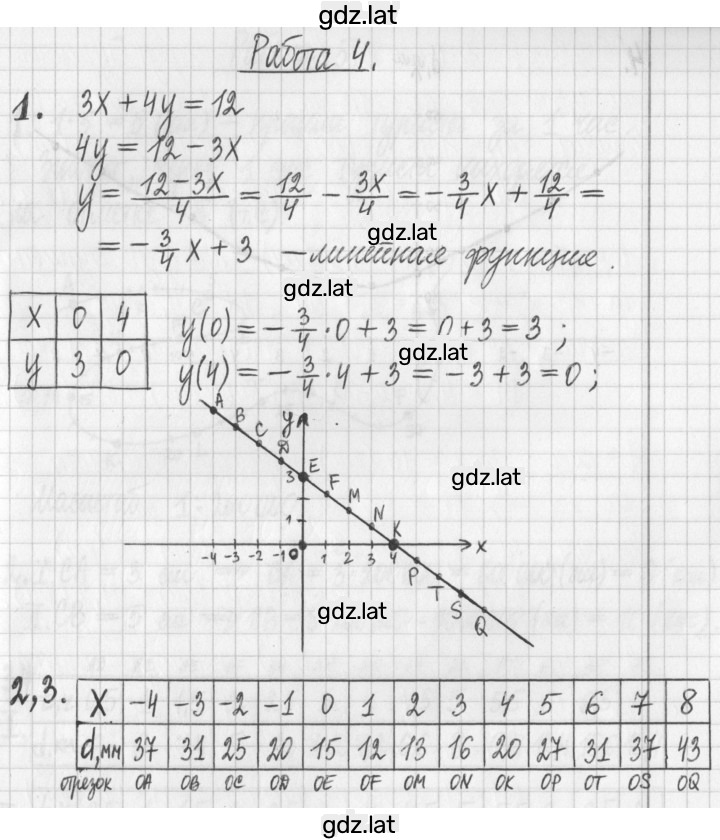 gdz.lat
Работа 4.
1. 3x + 4y = 12
4y = 12 - 3x
y = (12-3x)/4 = 12/4 - 3x/4 = -3/4 x + 12/4 =
gdz.lat
= -3/4 x + 3 — линейная функция.
gdz.lat
x 0 4
y 3 0
y(0) = -3/4 · 0 + 3 = 0 + 3 = 3 ;
gdz.lat
y(4) = -3/4 · 4 + 3 = -3 + 3 = 0 ;
A B C D E F M N K P T S Q
y
3
1
gdz.lat
-4 -3 -2 -1 0 1 2 3 4 x
gdz.lat
2,3.
x -4 -3 -2 -1 0 1 2 3 4 5 6 7 8
d, мм 37 31 25 20 15 12 13 16 20 27 31 37 43
отрезок OA OB OC OD OE OF OM ON OK OP OT OS OQ
gdz.lat